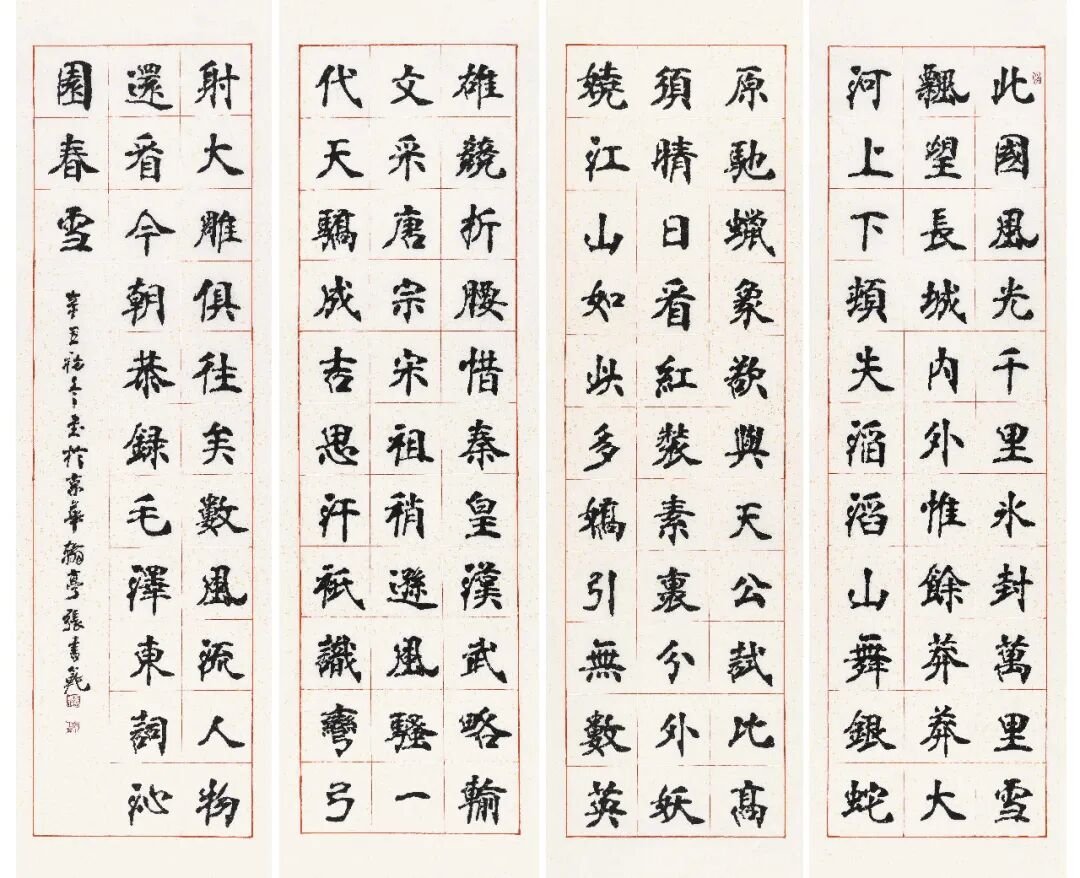 北國風光千里氷封萬里雪
飄望長城内外惟餘莽莽大
河上下頓失滔滔山舞銀蛇
原馳蠟象欲與天公試比高
須晴日看紅裝素裹分外妖
嬈江山如此多嬌引無數英
雄競折腰惜秦皇漢武略輸
文采唐宗宋祖稍遜風騷一
代天驕成吉思汗祇識彎弓
射大雕俱往矣數風流人物
還看今朝恭録毛澤東詞沁
園春雪
辛丑初冬書於京華翰亭張書範